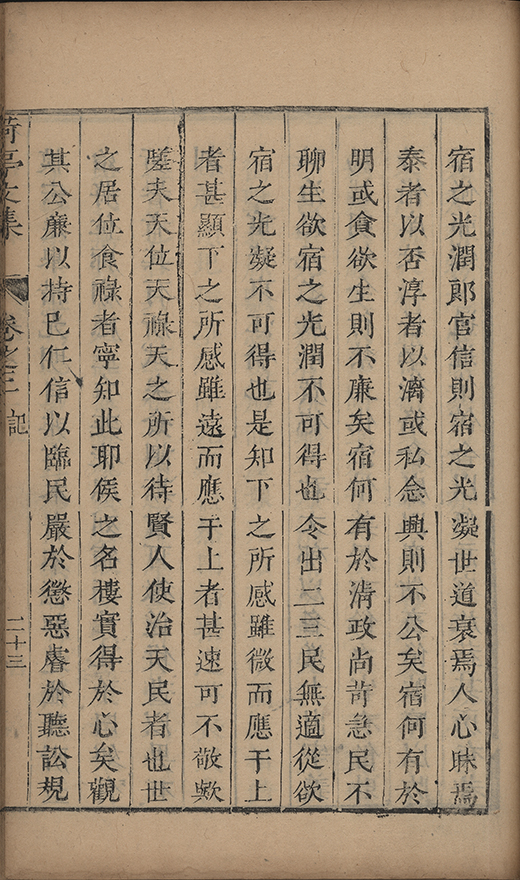 宿之光潤郎官信則宿之光凝世道衰焉人心昧焉
泰者以否淳者以漓或私念興則不公矣宿何有於
明或貪欲生則不廉矣宿何有於清政尚苛急民不
聊生欲宿之光潤不可得也令出二三民無適從欲
宿之光凝不可得也是知下之所感雖微而應于上
者甚顯下之所感雖遠而應于上者甚速可不敬歟
嗟夫天位天祿天之所以待賢人使治天民者也世
之居位食祿者寧知此耶侯之名樓實得於心矣觀
其公廉以持己仁信以臨民嚴於懲惡審於聽訟規
荷亭文集
卷之二
記
二十三